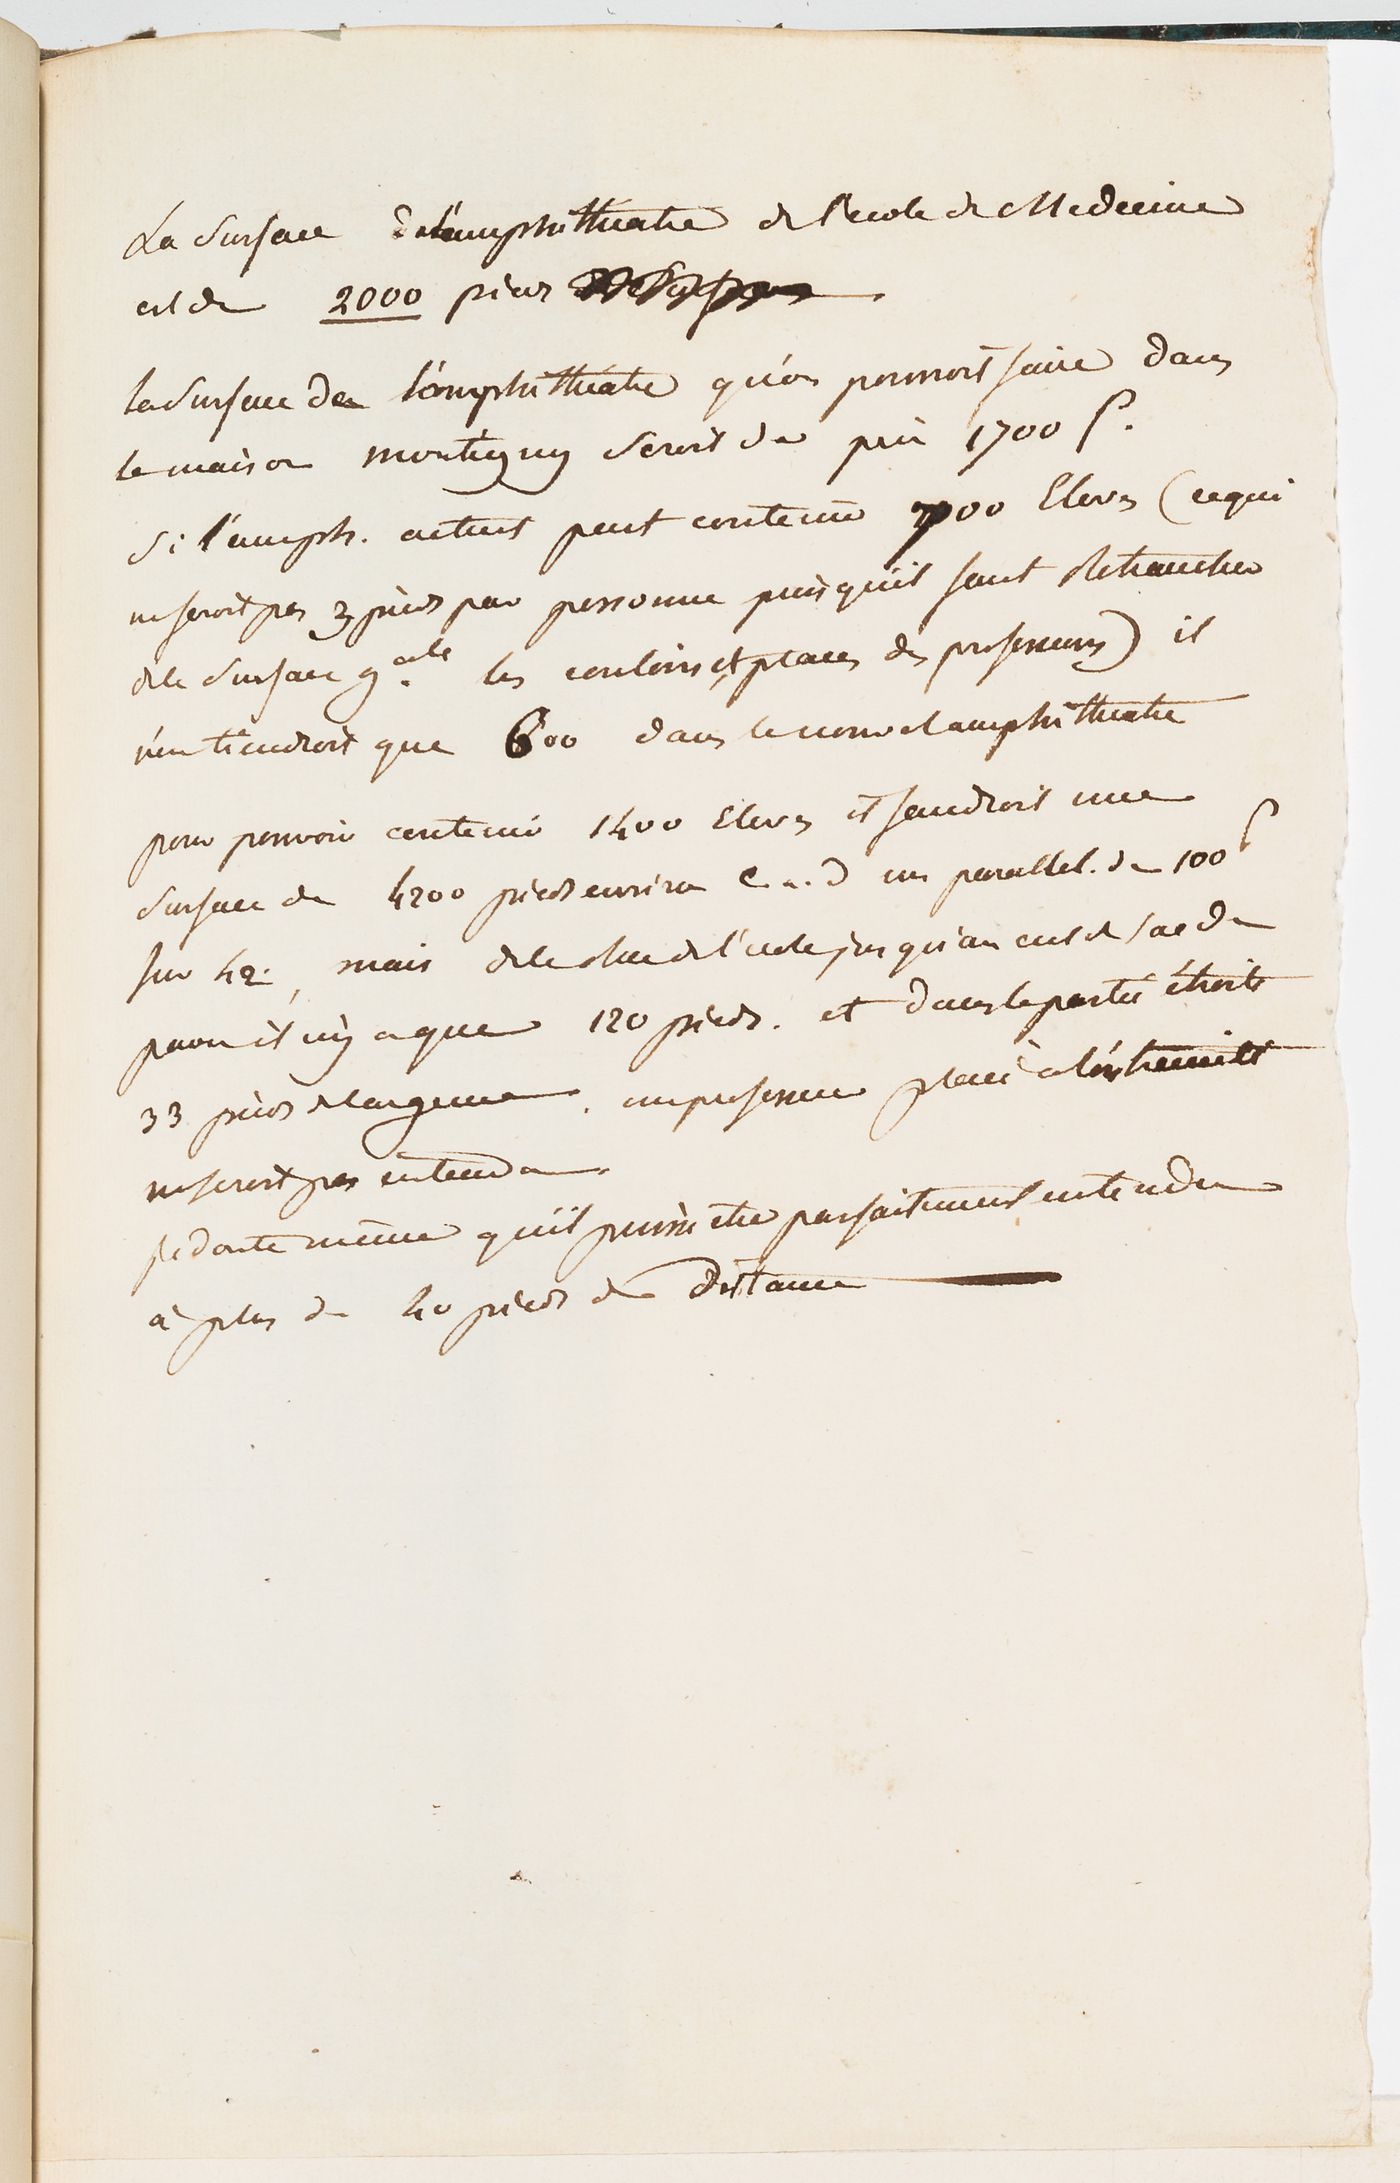 La Surface de l'amphithéatre de l'ecole de Medecine
est de 2000 pieds
la Surface de l'amphithéatre qu'on pourroit faire dans
la maison montigny seroit de 1700 p.
Si l'amph. actuel peut contenir 700 Eleves (ce qui
ne feroit pas 3 pieds par personne puisqu'il faut retrancher
de la Surface g.ale les couloirs et places des professeurs) il
n'en tiendroit que 600 dans le nouvel amphithéatre
pour pouvoir contenir 1400 Eleves il faudroit une
Surface de 4200 pieds environ c.a.d un parallel. de 100 p
sur 42. mais de la rue de l'ecole jusqu'au cul de sac du
paon il n'y a que 120 pieds. et dans la partie étroite
33 pieds de largeur. un professeur placé a l'extremité
ne seroit pas entendu.
je doute même qu'il puisse etre parfaitement entendu
à plus de 40 pieds de distance